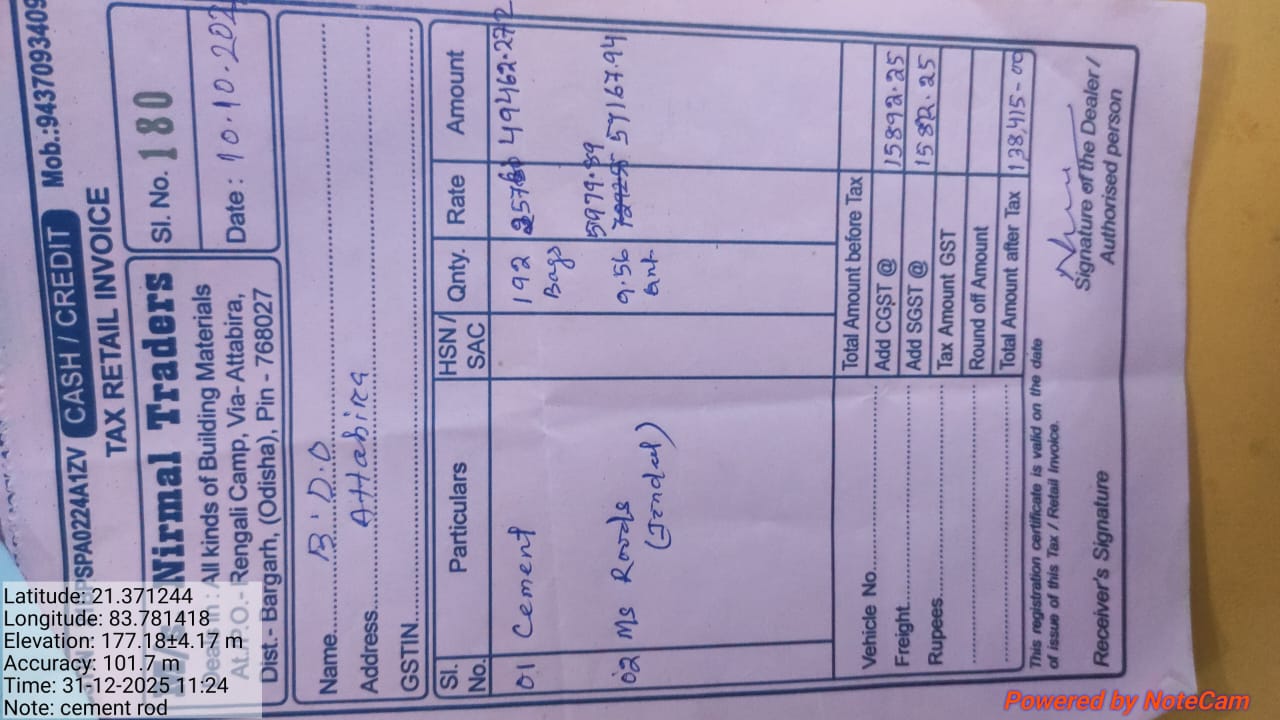 PSPA0224A1ZV CASH / CREDIT Mob.:9437093409
TAX RETAIL INVOICE
Nirmal Traders
Deals in : All kinds of Building Materials
At.P.O.- Rengali Camp, Via- Attabira,
Dist.- Bargarh, (Odisha), Pin - 768027
Sl. No. 180
Date : 10.10.202
Name B.D.O
Address Attabira
GSTIN
Sl. No. Particulars HSN / SAC Qnty. Rate Amount
01 Cement 192 Bags 49462.272
02 Ms Roods (Jrndal) 9.56 5979.89 57167.94
Total Amount before Tax
Vehicle No. Add CGST @ 15892.25
Freight Add SGST @ 1582.25
Rupees Tax Amount GST
Round off Amount
Total Amount after Tax 138,415-00
This registration certificate is valid on the date
of issue of this Tax / Retail Invoice.
Receiver's Signature
Signature of the Dealer /
Authorised person
Latitude: 21.371244
Longitude: 83.781418
Elevation: 177.18±4.17 m
Accuracy: 101.7 m
Time: 31-12-2025 11:24
Note: cement rod
Powered by NoteCam